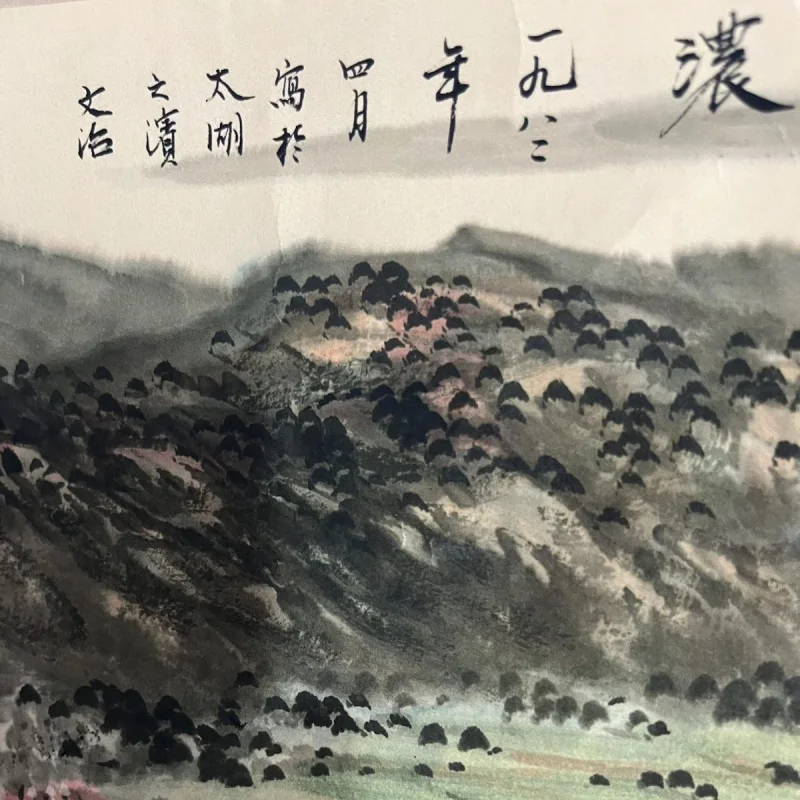 濃
一九八二
年
四月
寫於
太湖
之濱
文治